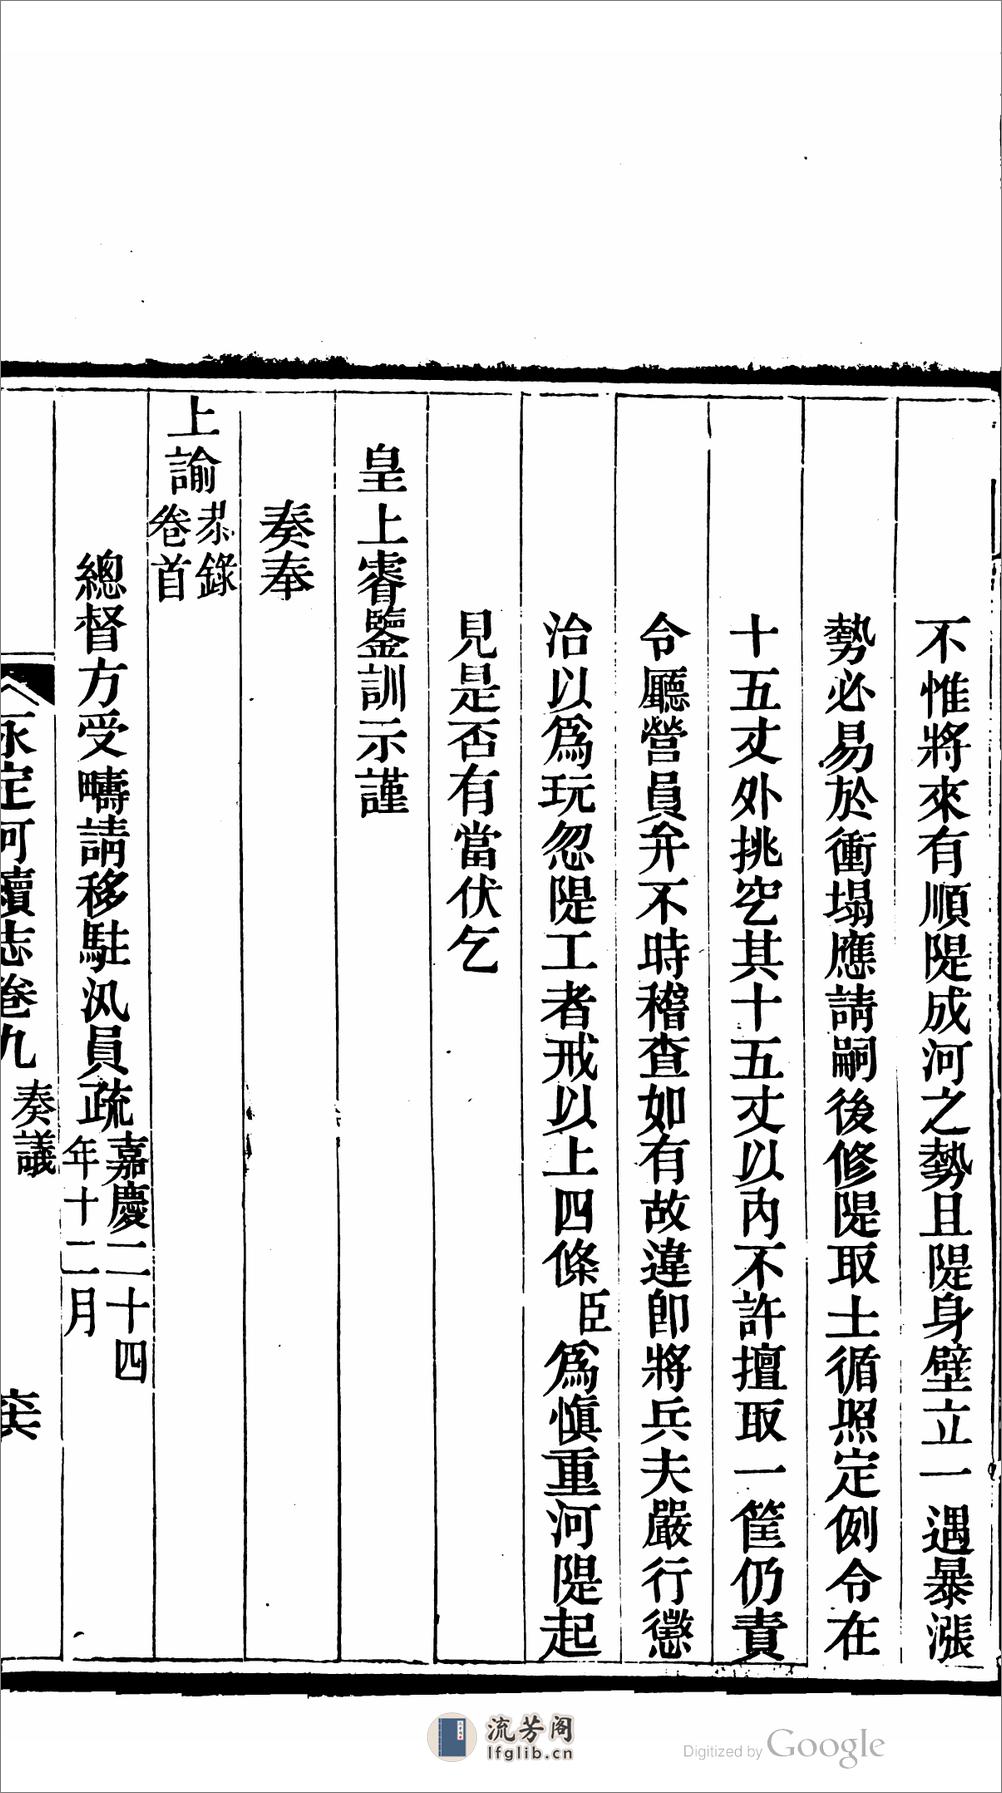 不惟將來有順隄成河之勢且隄身壁立一遇暴漲
勢必易於衝塌應請嗣後修隄取土循照定例令在
十五丈外挑空其十五丈以內不許擅取一筐仍責
令廳營員弁不時稽查如有故違卽將兵夫嚴行懲
治以爲玩忽隄工者戒以上四條臣爲愼重河隄起
見是否有當伏乞
皇上睿鑒訓示謹
奏奉
上諭恭錄卷首
總督方受疇請移駐汛員疏嘉慶二十四年十二月
永定河續志卷九 奏議
流芳阁
lfglib.cn
Digitized by Google